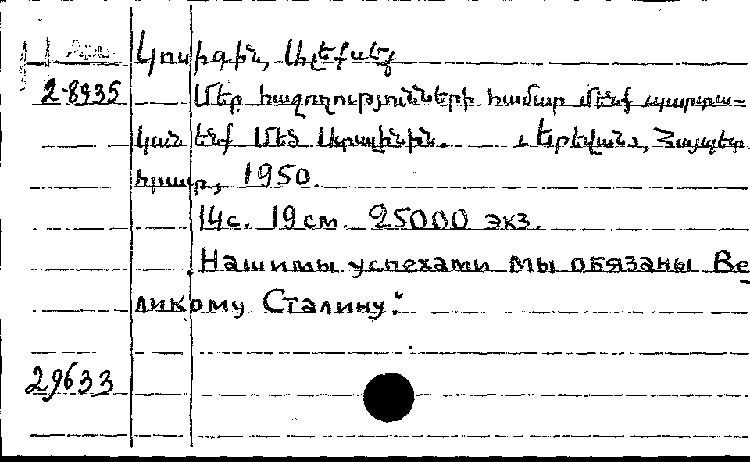 Կոսիգին, Ալեքսեյ
2-8935 Մեր հաջողությունների համար մենք պարտա-
կան ենք Մեծ Ստալինին. Երեվան, Հայպետ
հրատ, 1950.
14с. 19см. 25000 экз.
„Нашими успехами мы обязаны Ве
ликому Сталину."
29633